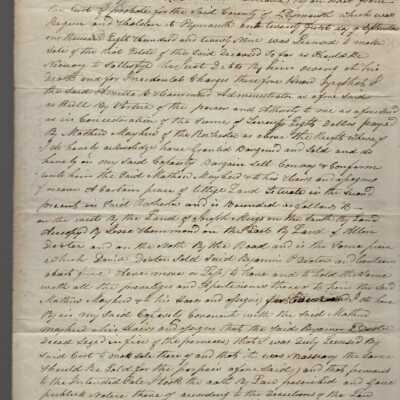 the Cort of Probate for the Said County of Plymouth which was
Begun and Holden at Plymouth and twenty first day of
one thousand Eight Hundred and twenty Nine was Licensed to make
Sale of the Real Estate of the Said Deceased So far as Should be
Necessary to Sattisfye his Just Debts By him owned at his
Death and for Incidental Charges therefore Know ye that I
the Said Administrator as afore Said
as Well By Virtue of the power and Athority to me as aforesaid
as in Concideration of the Sume of Eight Dollars payed
By Mathew Mayhew of the Rochester as above the Receipt where of
I do hereby acknowledge have Granted Bargened and Sold and do
hereby in my Said Capasity Bargain Sell Convay & Conferm
unto him the Said Mathew Mayhew & to his heirs and asignes
forever A Certain peace of Land Situate in the Second
precinct in Said Rochester and is Bounded as follows
on the west By the Land of on the South By Land
ocupyed By Hammond on the East By Land of Allen
Dexter and on the North By the Road and is the Same peace
which David Dexter Sold Said Benjamin Dexter and contains
about five Acres more or Less, to have and to hold the Same
with all the privelges and Apertenances thereto to him the Said
Mathew Mayhew & to his Heirs and Asignes for Ever and I do here
By in my Said Capasity Covenant with the Said Mathew
Mayhew his Heirs and Asignes that the Said Benjamin Dexter
Deced Seized in fee of the premises, that I was duly Licensed By
Said Cort to make Sale there of and that it was Nassasary the Same
Should be Sold for the purposes afore Said, and that previous
to the Intended Sale I took the oath By Law prescribed and gave
publick Notice there of according to the Directions of the Law